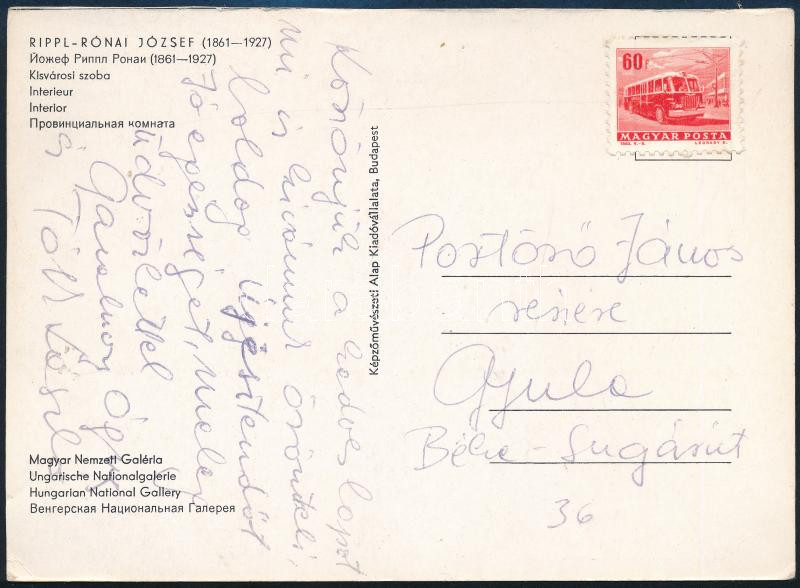 RIPPL-RÓNAI JÓZSEF (1861—1927)
Йожеф Риппл Ронаи (1861—1927)
Kisvárosi szoba
Interieur
Interior
Провинциальная комната
Köszönjük a kedves lapot
mi is kívánunk örömteli,
boldog újesztendőt
Jó egészséget, meleg
üdvözlettel
Olga
és Tóth László
Magyar Nemzeti Galéria
Ungarische Nationalgalerie
Hungarian National Gallery
Венгерская Национальная Галерея
Képzőművészeti Alap Kiadóvállalata, Budapest
60f
MAGYAR POSTA
1963. V.-K. LÉGRÁDY S.
János
részére
Gyula
Béke-Sugárút
36